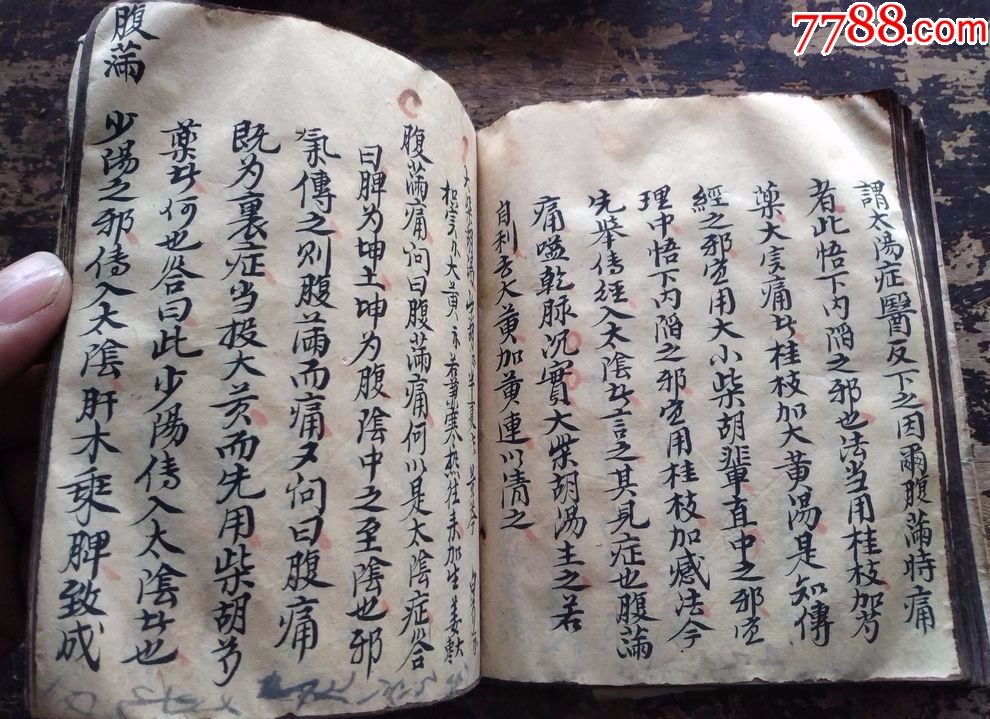 7788.com
謂太陽症醫反下之因爾腹滿時痛
者此悟下内陷之邪也法当用桂枝加芍
藥大实痛廿桂枝加大黃湯是知傳
經之邪宜用大小柴胡輩直中之邪宜
理中悟下内陷之邪宜用桂枝加减法今
先举傳經入太陰廿言之其見症也腹滿
痛嗌乾脉沉實大柴胡湯主之若
自利去大黃加黃連以清之
大柴胡湯
枳实 大黃 寒热往来加生姜
腹滿痛问曰腹滿痛何以是太陰症答
曰脾为坤土坤为腹陰中之至陰也邪
氣傳之則腹滿而痛又问曰腹痛
既为裏症当投大黄而先用柴胡芍
藥廿何也答曰此少陽傳入太陰廿也
腹滿
少陽之邪傳入太陰肝木乘脾致成